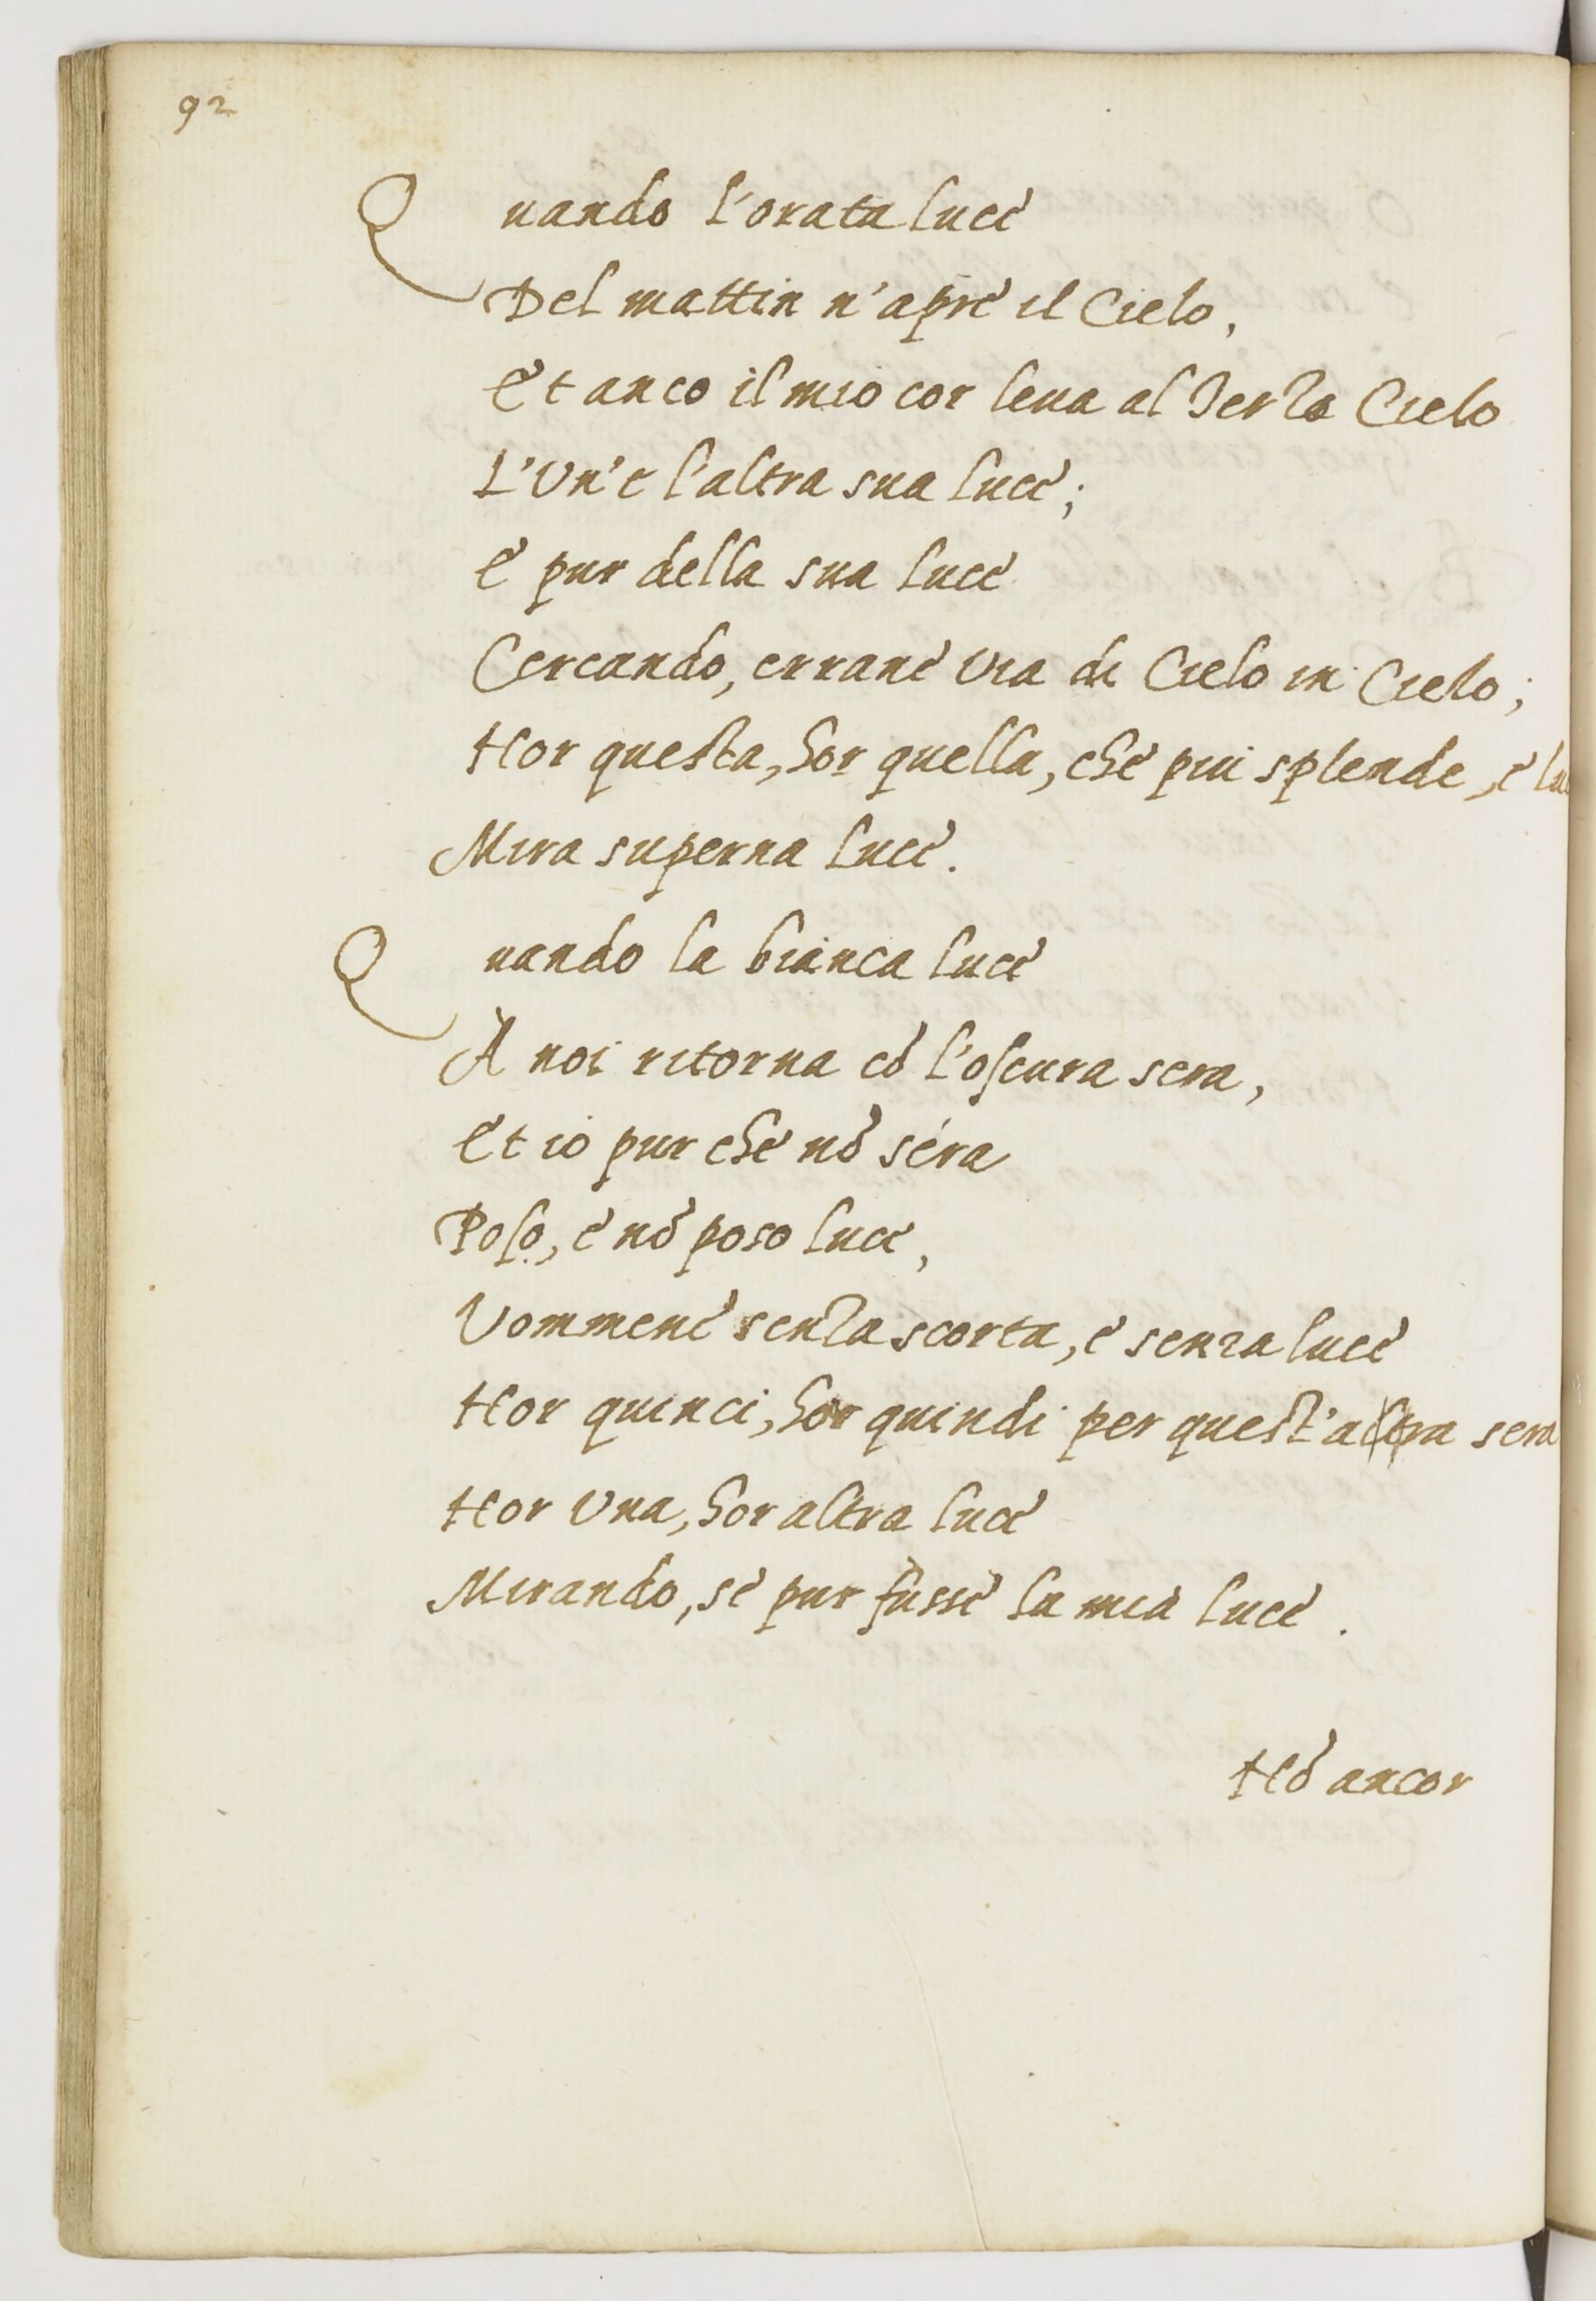 92
Quando l'orata luce
Del mattin n'apre il Cielo,
Et anco il mio cor leua al Terzo Cielo
L'Un'e l'altra sua luce;
E pur della sua luce
Cercando, errane via di Cielo in Cielo;
Hor questa, hor quella, che piu splende, e
Mira superna luce.
Quando la bianca luce
A noi ritorna cō l'oscura sera,
Et io pur che nō séra
Poso, e nō poso luce,
Vommene senza scorta, e senza luce
Hor quinci, hor quindi per quest' sera
Hor Una, hor altra luce
Mirando, se pur fusse la mia luce.
Hō ancor